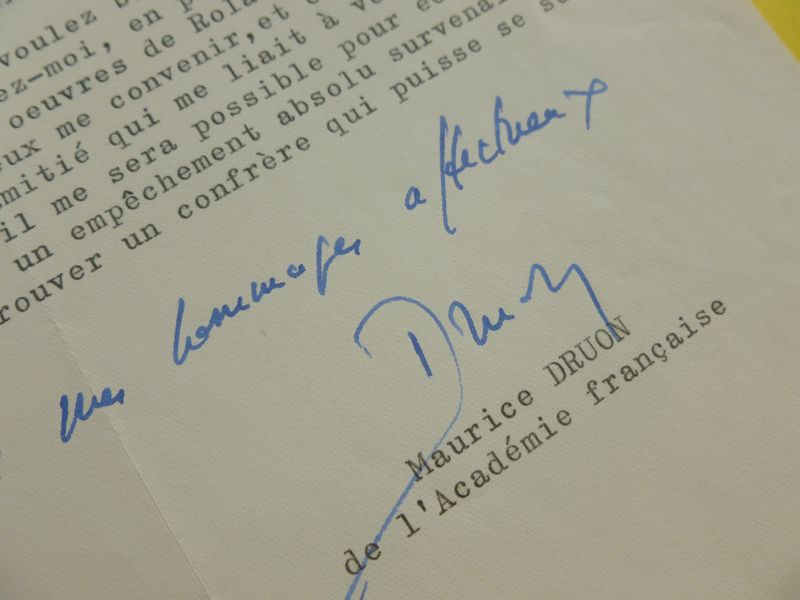 voulez b
ez-moi, en p
oeuvres de Rola
eux me convenir,et
amitié qui me liait à v
il me sera possible pour éc
un empêchement absolu survenai
rouver un confrère qui puisse se s
mes hommages affectueux
Druon
Maurice DRUON
de l'Académie française